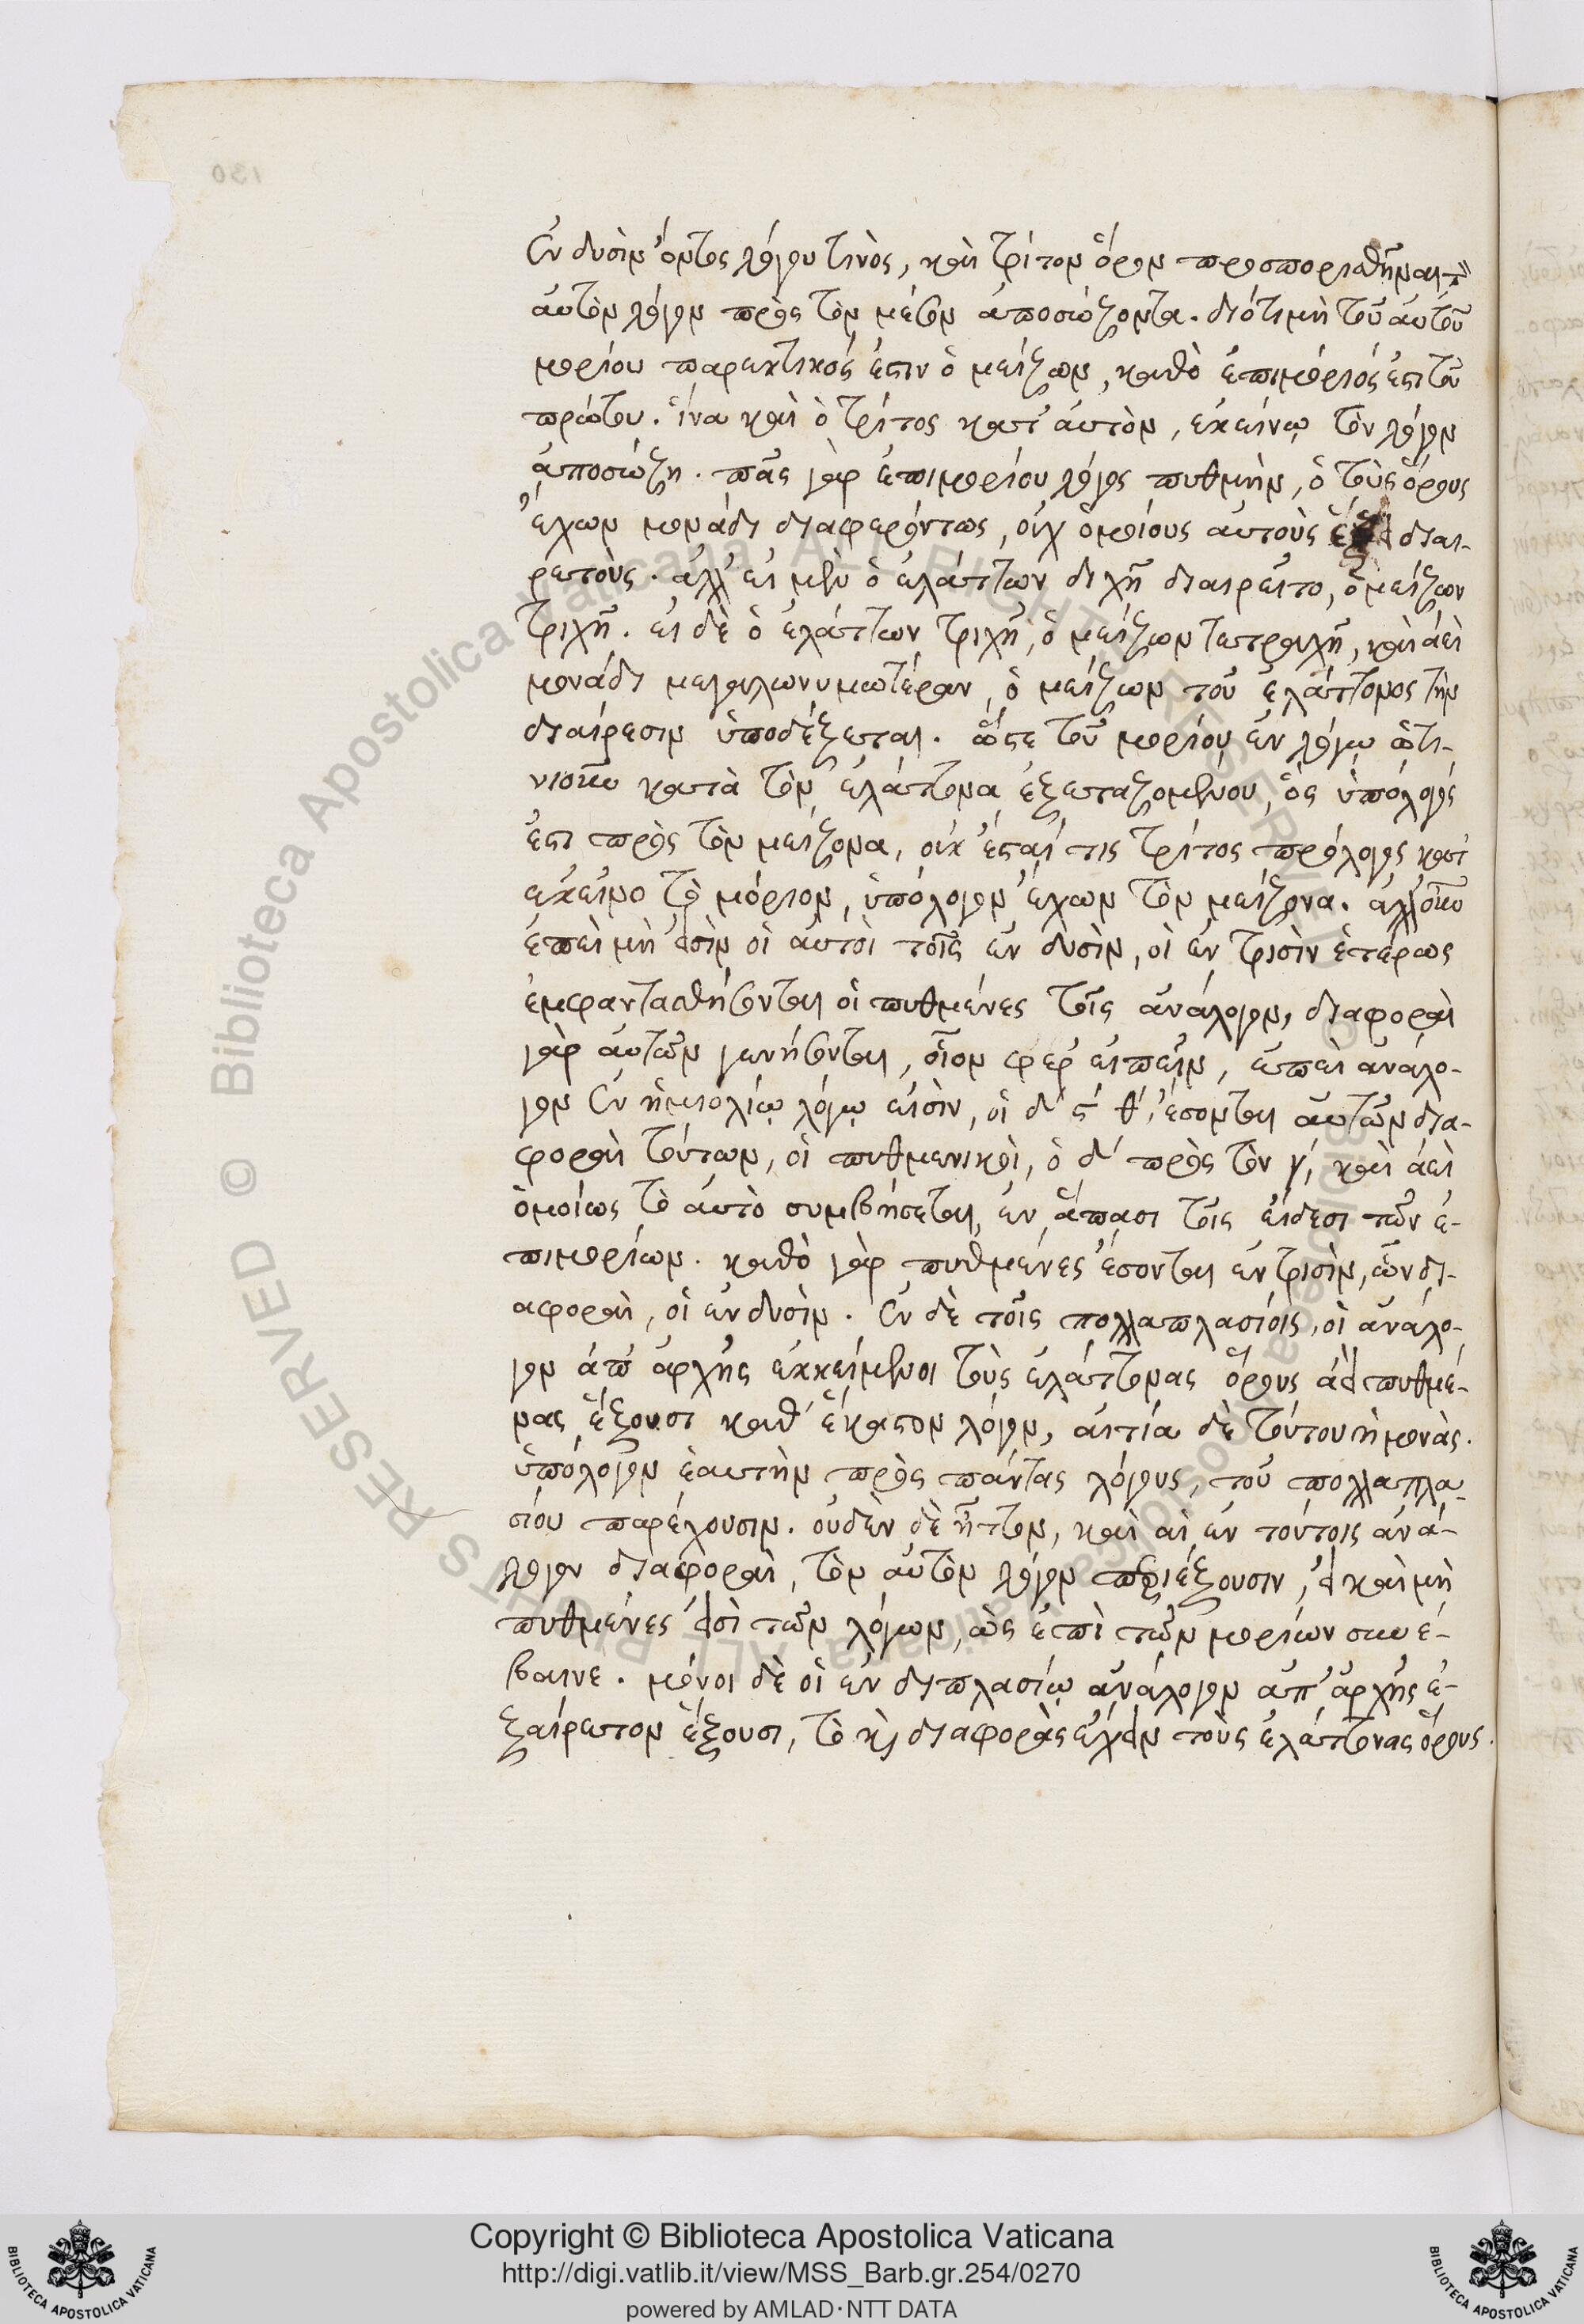 130
ἐν δυσὶν ὄντος λόγου τινὸς, καὶ τρίτον ὅρον προσπορισθῆναι τὸν
αὐτὸν λόγον πρὸς τὸν μέσον ἀποσώζοντα. διότι μὴ τοῦ αὐτοῦ
μορίου παρεκτικός ἐστιν ὁ μείζων, καθὸ ἐπιμόριός ἐστι τοῦ
πρώτου. ἵνα καὶ ὁ τρίτος κατ' αὐτὸν, ἐκείνῳ τὸν λόγον
ἀποσώζῃ. πᾶς γὰρ ἐπιμορίου λόγος πυθμὴν, ὁ τοὺς ὅρους
ἔχων μονάδι διαφερόντως, οὐχ ὁμοίους αὐτοὺς ἕξει διαι-
ρετούς. ἀλλ' εἰ μὲν ὁ ἐλάττων διχῇ διαιρεῖτο, ὁ μείζων
τριχῇ. εἰ δὲ ὁ ἐλάττων τριχῇ, ὁ μείζων τετραχῇ, καὶ ἀεὶ
μονάδι μεγαλωνυμωτέραν, ὁ μείζων τοῦ ἐλάττονος τὴν
διαίρεσιν ὑποδέξεται. ὥστε τοῦ μορίου ἐν λόγῳ ᾧτι-
νιοῦν κατὰ τὸν ἐλάττονα ἐξεταζομένου, ὃς ὑπόλογός
ἐστι πρὸς τὸν μείζονα, οὐκ ἔσται τις τρίτος πρόλογος κατ'
ἐκεῖνο τὸ μόριον, ὑπόλογον ἔχων τὸν μείζονα. ἀλλ' οὖν
ἐπεὶ μή εἰσιν οἱ αὐτοὶ τοῖς ἐν δυσὶν, οἱ ἐν τρισὶν ἑτέρως
ἐμφαντασθήσονται οἱ πυθμένες τοῖς ἀνάλογον, διαφοραὶ
γὰρ αὐτῶν γενήσονται, οἷον φέρ' εἰπεῖν, ἐπεὶ ἀνάλο-
γον ἐν ἡμιολίῳ λόγῳ εἰσὶν, οἱ δ' ς' θ', ἔσονται αὐτῶν δια-
φοραὶ τούτων, οἱ πυθμενικοὶ, ὁ β' πρὸς τὸν γ', καὶ ἀεὶ
ὁμοίως τὸ αὐτὸ συμβήσεται, ἐν ἅπασι τοῖς εἴδεσι τῶν ἐ-
πιμορίων. καθὸ γὰρ πυθμένες ἔσονται ἐν τρισὶν, ὧν δι-
αφοραὶ, οἱ ἐν δυσὶν. ἐν δὲ τοῖς πολλαπλασίοις, οἱ ἀνάλο-
γον ἀπ' ἀρχῆς ἐκκείμενοι τοὺς ἐλάττονας ὅρους ἀεὶ πυθμέ-
νας ἕξουσι καθ' ἕκαστον λόγον, αἰτία δὲ τούτου ἡ μονὰς.
ὑπόλογον ἑαυτὴν πρὸς πάντας λόγους, τοῦ πολλαπλα-
σίου παρέχουσιν. οὐδὲν δὲ ἧττον, καὶ αἱ ἐν τούτοις ἀνά-
λογον διαφοραὶ, τὸν αὐτὸν λόγον περιέξουσιν, εἰ καὶ μὴ
πυθμένες εἰσὶ τῶν λόγων, ὡς ἐπὶ τῶν μορίων συνέ-
βαινε. μόνοι δὲ οἱ ἐν διπλασίῳ ἀνάλογον ἀπ' ἀρχῆς ἐ-
ξαίρετον ἕξουσι, τὸ καὶ διαφορὰς ἔχειν τοὺς ἐλάττονας ὅρους.
Copyright © Biblioteca Apostolica Vaticana
http://digi.vatlib.it/view/MSS_Barb.gr.254/0270
powered by AMLAD·NTT DATA
BIBLIOTECA APOSTOLICA VATICANA
BIBLIOTECA APOSTOLICA VATICANA